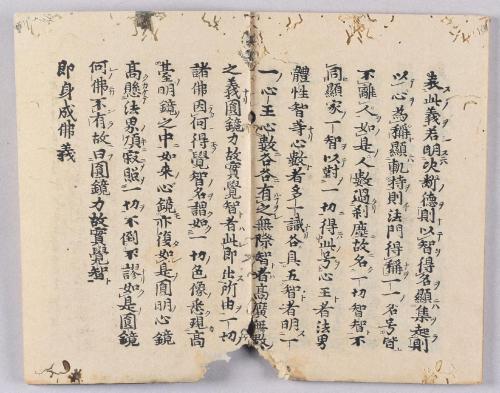 表此義若明決斷德則以智得名顯集起則
以心為稱顯軌持則法門得稱一一名号皆
不離人如是人數過刹塵故名一切智智不
同顯家一智以對一切得此号心王者法界
體性智等心數者多一識各具五智者明一
一心王心數各各有之無際智者高廣無數
之義圓鏡力故實覺智者此即出所由一切
諸佛因何得覺智名謂如一切色像悉現高
臺明鏡之中如來心鏡亦復如是圓明心鏡
高懸法界頂寂照一切不倒不謬如是圓鏡
何佛不有故曰圓鏡力故實覺智
即身成佛義